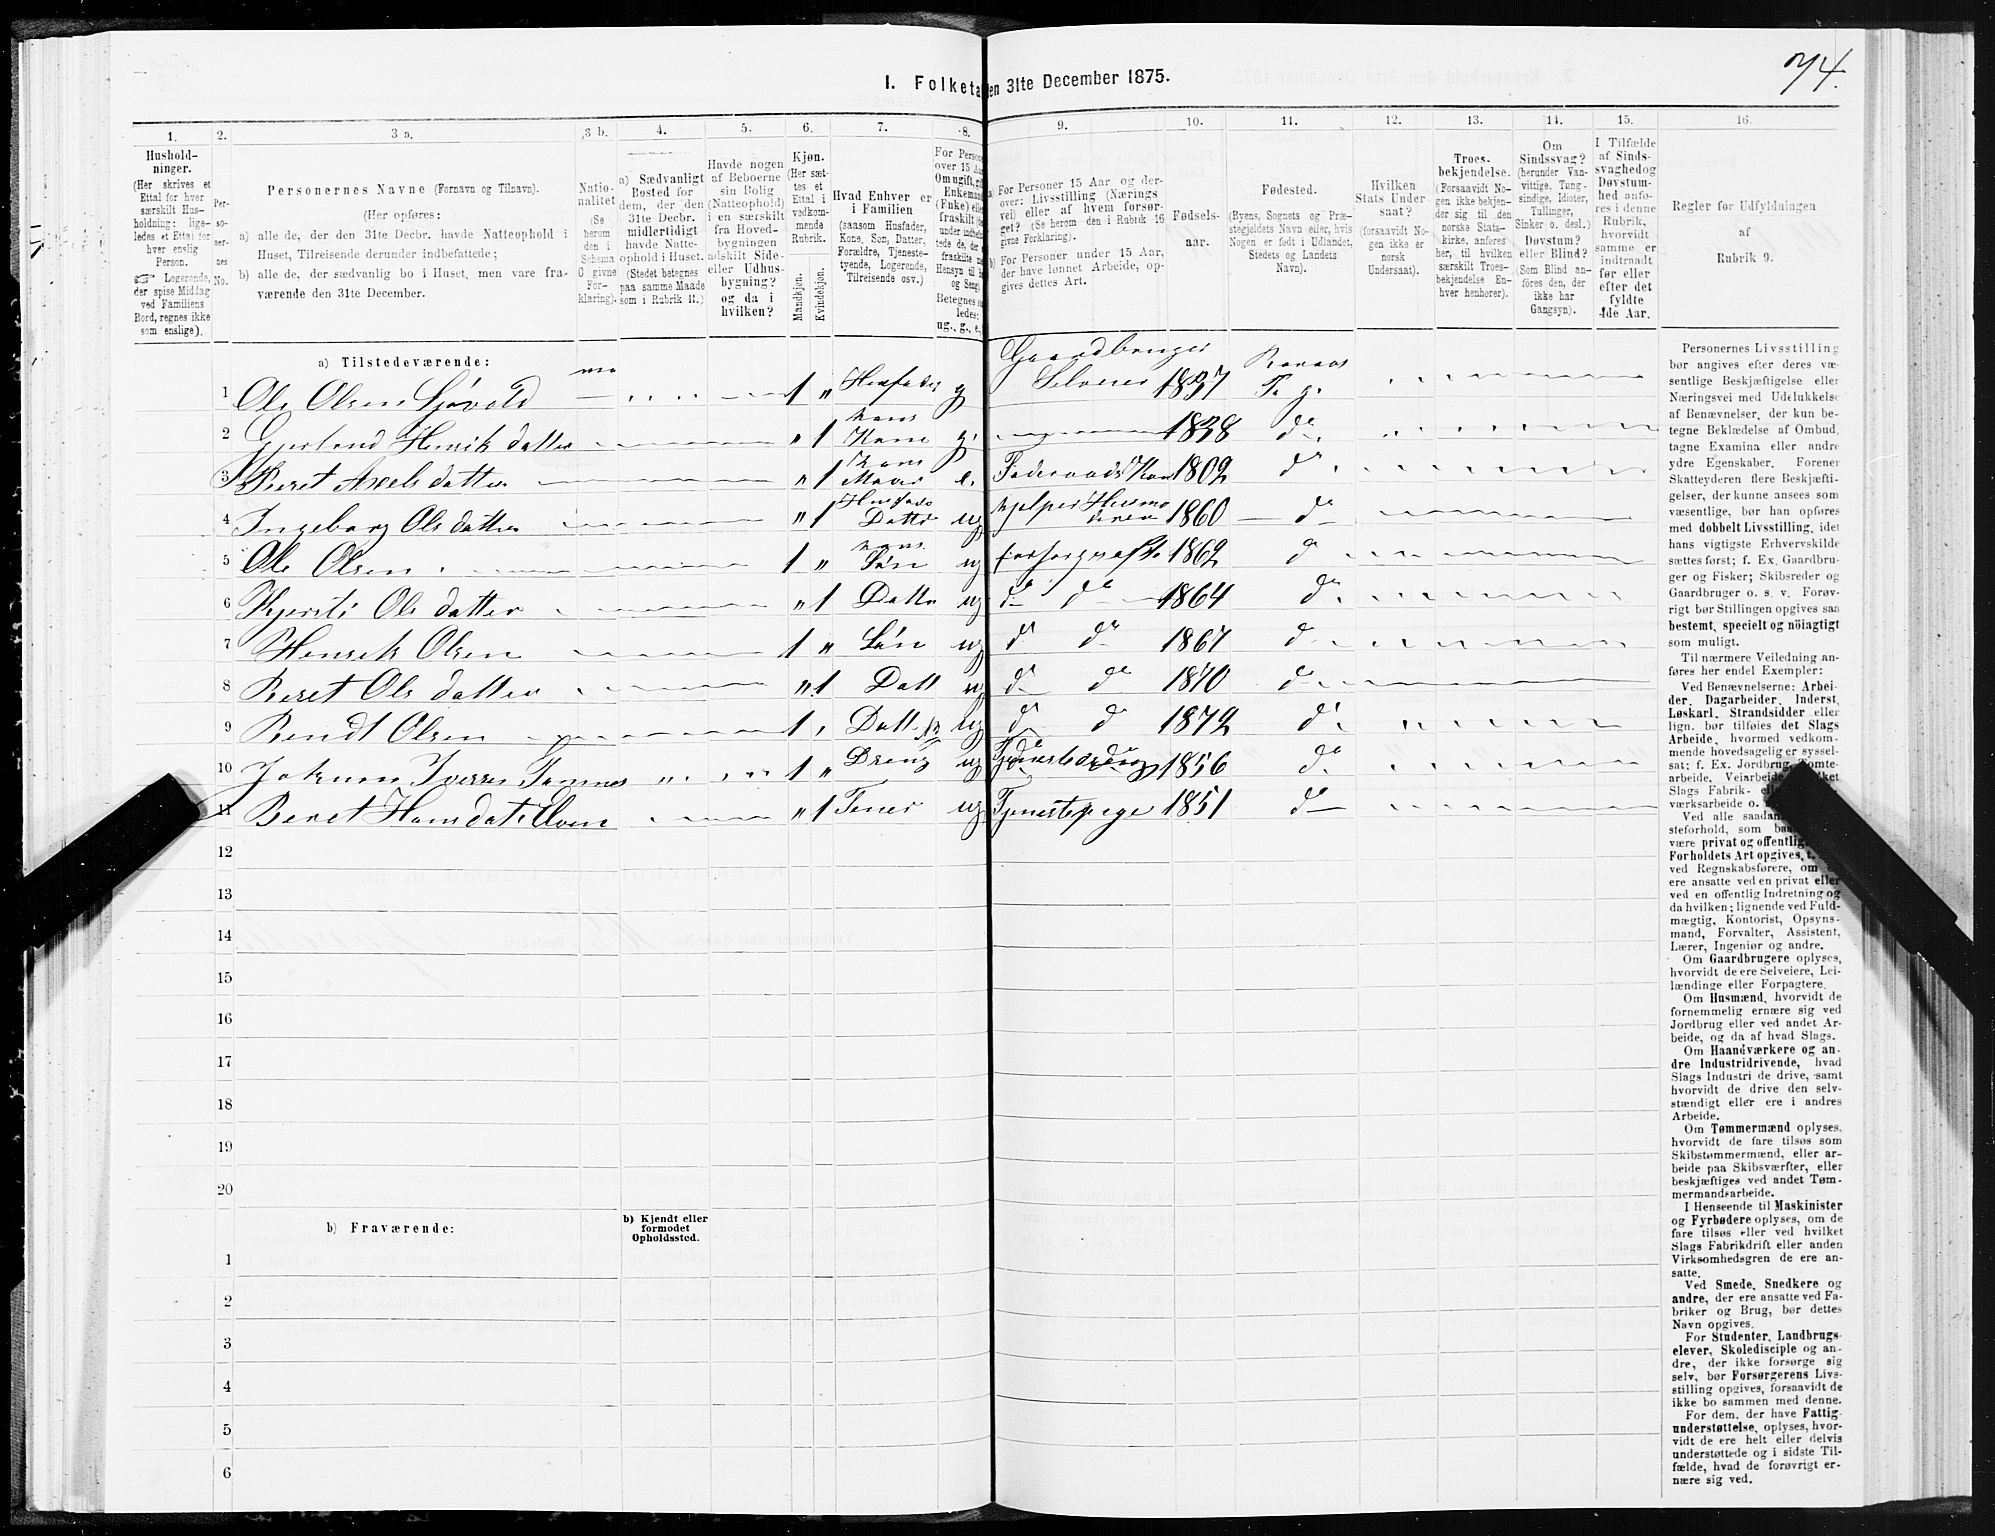 74.
I. Folketa
en 31te December 1875.
1. 2. 3 a. 3 b. 4. 5. 6. 7. 8. 9. 10. 11. 12. 13. 14. 15. 16.
Hushold-
ninger.
(Her skrives et
Ettal for hver
særskilt Hus-
holdning; lige-
ledes et Ettal for
hver enslig
Person.
☞ Logerende,
der spise Middag
ved Familiens
Bord, regnes ikke
som enslige).
Per-
so-
ner-
nes
No.
Personernes Navne (Fornavn og Tilnavn).
(Her opføres:
a) alle de, der den 31te Decbr. havde Natteophold i
Huset, Tilreisende derunder indbefattede;
b) alle de, der sædvanlig bo i Huset, men vare fra-
værende den 31te December.
Natio-
nalitet
(Se
herom
den i
Schema
C givne
For-
klaring).
a) Sædvanligt
Bosted for
dem, der den
31te Decbr.
midlertidigt
havde Natte-
ophold i Huset.
(Stedet betegnes
paa samme Maade
som i Rubrik 11.)
Havde nogen
af Beboerne
sin Bolig
(Natteophold)
i en særskilt
fra Hoved-
bygningen
adskilt Side-
eller Udhus-
bygning?
og da i
hvilken?
Kjøn.
(Her sæt-
tes et
Ettal i
vedkom-
mende
Rubrik.
Mandkjøn.
Kvindekjøn.
Hvad Enhver er
i Familien
(saasom Husfader,
Kone, Søn, Datter,
Forældre, Tjeneste-
tyende, Logerende,
Tilreisende osv.)
For Persone
over 15 Aa
Om ugift, gif
Enkeman
(Enke) elle
fraskilt
ug., g., e.,
a) For Personer 15 Aar og der-
over: Livsstilling (Nærings
vei) eller af hvem forsør-
get? (Se herom den i Rubrik 16
givne Forklaring).
b) For Personer under 15 Aar,
der have lønnet Arbeide, op-
gives dettes Art.
Fødsels-
aar.
Fødested.
(Byens, Sognets og Præ-
stegjeldets Navn eller, hvis
Nogen er født i Udlandet,
Stedets og Landets
Navn).
Hvilken
Stats Under-
saat?
(forsaavidt No-
gen ikke er
norsk
Undersaat).
Troes-
bekjendelse.
(Forsaavidt No-
gen ikke bekjen-
der sig til den
norske Stats-
kirke, anføres
her, til hvilken
særskilt Troes-
bekjendelse En-
hver henhører).
Om
Sindssvag?
(herunder Van-
vittige, Tung-
sindige, Idioter,
Tullinger,
Sinker o. desl.)
Døvstum?
eller Blind?
(Som Blind an-
føres den, der
ikke har
Gangsyn).
I Tilfælde
af Sinds-
svaghed og
Døvstum-
hed anfø-
res i denne
Rubrik,
hvorvidt
samme er
indtraadt
før eller
efter det
fyldte
4de Aar.
Regler for Udfyldningen
af
Rubrik 9.
a) Tilstedeværende:
1 Ole Olsen Sjøvold 1 " Husfader g Gaardbruger Selveier 1837 Røraas P. g.
2 Gjertrud Henrikdatter " 1 hans Kone g. 1838 do
3 Beret Axelsdatter " 1 hans Moder e. Føderaads Kone 1802 do
4 Ingeborg Olsdatter " 1 Husfads Datter ug hjelper Husmo 1860 do
5 Ole Olsen 1 " hans Søn ug forsørges af Fa 1862 do
6 Kjersti Olsdatter " 1 Datte ug do do 1864 do
7 Henrik Olsen 1 " Søn ug do do 1867 do
8 Beret Olsdatter " 1 Datt ug do do 1870 do
9 Bendt Olsen 1 " Datt ug do do 1872 do
10 Johan Iversen 1 " Dreng ug Tjenestedreng 1856 do
11 Beret Hansdat " 1 Tener ug Tjenestepige 1851 do
12
13
14
15
16
17
18
19
20
b) Fraværende:
b) Kjendt eller
formodet
Opholdssted.
1
2
3
4
5
6
Personernes Livsstilling
bør angives efter deres væ-
sentlige Beskjæftigelse eller
Næringsvei med Udelukkelse
af Benævnelser, der kun be-
tegne Beklædelse af Ombud,
tagne Examina eller andre
ydre Egenskaber. Forener
Skatteyderen flere Beskjæfti-
gelser, der kunne ansees som
væsentlige, bør han opføres
med dobbelt Livsstilling, idet
hans vigtigste Erhvervskilde
sættes først; f. Ex. Gaardbru-
ger og Fisker; Skibsreder og
Gaardbruger o. s. v. Forøv-
rigt bør Stillingen opgives saa
bestemt, specielt og nöiagtigt
som muligt.
Til nærmere Veiledning an-
føres her endel Exempler:
Ved Benævnelserne: Arbei-
der, Dagarbeider, Inderst,
Løskarl, Strandsidder eller
lign. bør tilføies det Slags
Arbeide, hvormed vedkom-
mende hovedsagelig er syssel-
sat; f. Ex. Jordbrug, Tomte-
arbeide, Veiarbeide,
Slags Fabrik-
værksarbeide o.
Ved alle saadan
steforhold, som
være privat og offentlig,
Forholdets Art opgives,
ved Regnskabsførere, om
ere ansatte ved en privat eller
ved en offentlig Indretning og
da hvilken; lignende ved Fuld-
mægtig, Kontorist, Opsyns-
mand, Forvalter, Assistent,
Lærer, Ingeniør og andre.
Om Gaardbrugere oplyses,
hvorvidt de ere Selveiere, Lei-
lændinge eller Forpagtere.
Om Husmænd, hvorvidt de
fornemmelig ernære sig ved
Jordbrug eller ved andet Ar-
beide, og da af hvad Slags.
Om Haandværkere og an-
dre Industridrivende, hvad
Slags Industri de drive, samt
hvorvidt de drive den selv-
stændigt eller ere i andres
Arbeide.
Om Tømmermænd oplyses,
hvorvidt de fare tilsøs som
Skibstømmermænd, eller ar-
beide paa Skibsværfter, eller
beskjæftiges ved andet Tøm-
mermandsarbeide.
I Henseende til Maskinister
og Fyrbødere oplyses, om de
fare tilsøs eller ved hvilket
Slags Fabrikdrift eller anden
Virksomhedsgren de ere an-
satte.
Ved Smede, Snedkere og
andre, der ere ansatte ved Fa-
briker og Brug, bør dettes
Navn opgives.
For Studenter, Landbrugs-
elever, Skoledisciple og an-
dre, der ikke forsørge sig
selv, bør Forsørgerens Livs-
stilling opgives, forsaavidt de
ikke bo sammen med denne.
For dem, der have Fattig-
understøttelse, oplyses, hvor-
vidt de ere helt eller delvis
understøttede og i sidste Til-
fælde, hvad de forøvrigt er-
nære sig ved.